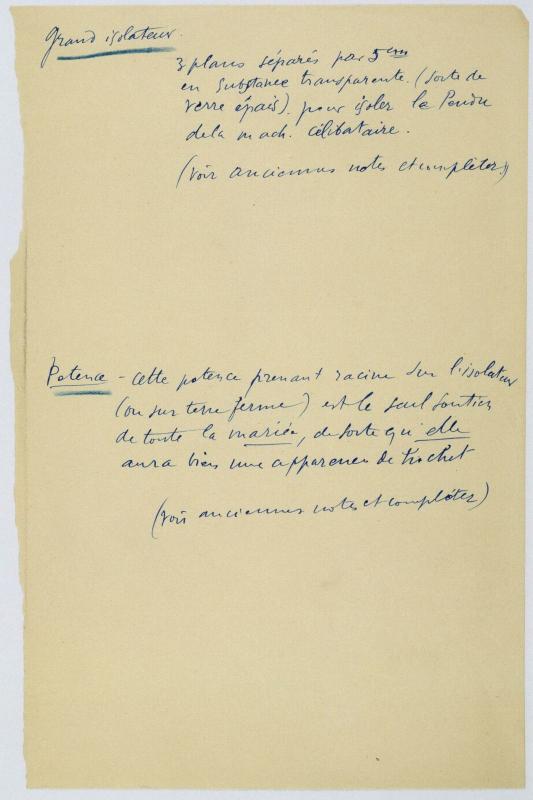 Grand isolateur.
3 plans séparés par 5 cm
en substance transparente. (sorte de
verre épais). pour isoler le Pendu
de la mach. célibataire.
(voir anciennes notes et compléter.)
Potence - Cette potence prenant racine sur l'isolateur
(ou sur terre ferme) est le seul soutien
de toute la mariée, de sorte qu'elle
aura bien une apparence de
(voir anciennes notes et compléter)